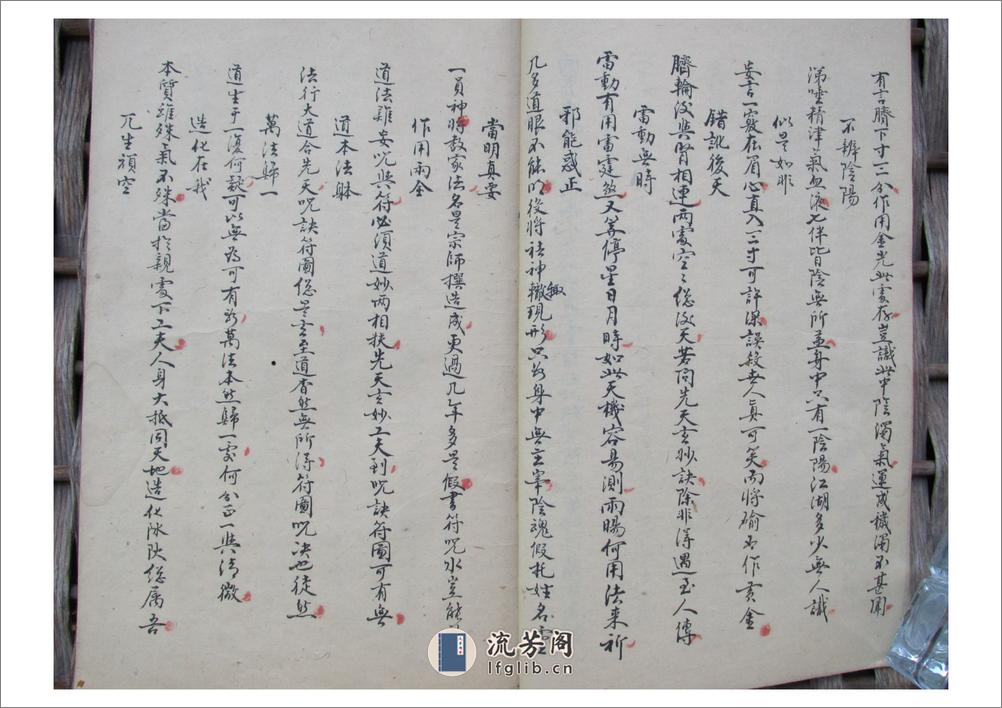 有言臍下寸二分作用金光此處存豈識此中陰濁氣運成穢濁不甚聞
不辨陰陽
涕唾精津氣血液七件皆陰無所並身中只有一陰陽江湖多少無人識
似是如非
妄言一竅在眉心直入三寸可許深誤殺世人真可笑而將鍮石作黃金
錯訛後天
臍輪後與腎相連兩處空空總後天若問先天玄妙訣除非得遇至人傳
雷動無時
雷動有用雷霆煞又等停星日月時如此天機容易測雨暘何用法來祈
邪能惑正
几多道眼不能明後將祛神轍現形只為身中無主宰陰魂假托姓名
當明真妄
一員神時教家法名是宗師撰造成更過几年多是假書符咒水豈能
作用兩全
道法難安咒與符必須道妙兩相扶先天玄妙工夫到咒訣符圖可有無
道本法躰
法行大道合先天咒訣符圖總是玄至道杳然無所得符圖咒決也徒然
萬法歸一
道生于一復何說可以無為可有為萬法本然歸一處何分正一與清微
造化在我
本質雖殊氣不殊當於親處下工夫人身大抵同天地造化陰陽總属吾
兀坐頑空
流芳阁
lfglib.cn